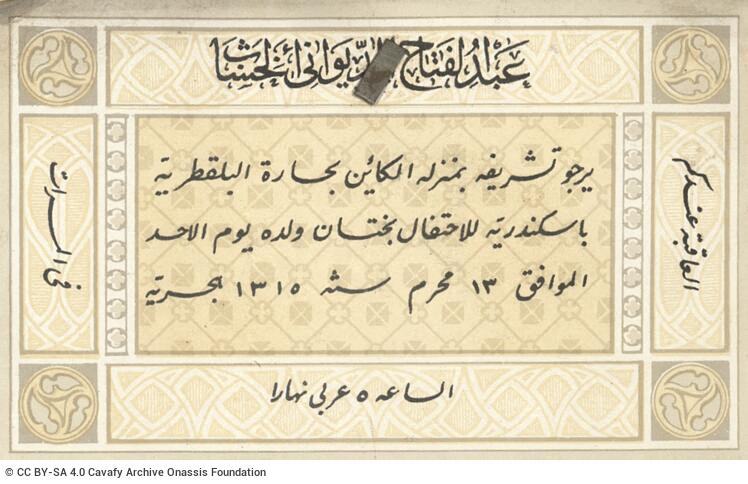 عبد الفتاح الديواني
يرجو تشريفه بمنزله الكائن بحارة البلقطرية
باسكندرية للاحتفال بختان ولده يوم الاحد
الموافق ١٣ محرم سنة ١٣١٥ هجرية
العاقبة عندكم
في المسرات
الساعه ٥ عربي نهارا
© CC BY-SA 4.0 Cavafy Archive Onassis Foundation